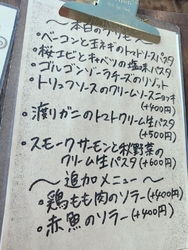 ～本日のリモーネ～
・ベーコンと玉ネギのトマトソースパスタ
・桜エビとキャベツの塩味パスタ
・ゴルゴンゾーラチーズのリゾット
・トリュフソースのクリームソースニョッキ
(+400円)
・渡りガニのトマトクリーム生パスタ
(+500円)
・スモークサーモンと秋野菜の
クリーム生パスタ(+600円)
～追加メニュー～
・鶏もも肉のソテー(+400円)
・赤魚のソテー(+400円)